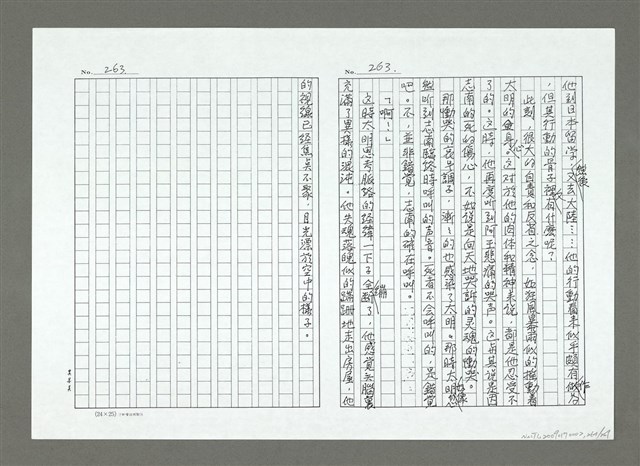 No. 263.
他到日本留学，又去大陸……他的行動看来似乎頗有做为
然後
作
，但其行動的骨子裡有什麼呢？
此刻，很大的自責和反省之念，如狂風暴雨似的搖動着
太明的全身。这对於他的肉体和精神来说，都是他忍受不
心
了的。这時，他再度听到阿玉悲痛的哭声。这与其说是因
志南的死的傷心，不如说是向天地哭訴的灵魂的慟哭。
那慟哭的哀牛調子，漸漸的也感染了太明。那時太明忽
好像
然听到志南臨終時呼叫的声音。死者不会呼叫的，是錯覚
吧。不，並非錯覚，志南的確在呼叫。……
「啊！」
这時太明思考脈絡的経緯一下子全斷了，他感覚头腦裏
繃
充滿了異樣的混沌。他失魂落魄似的蹣跚地走出房屋，他
No. 263
的視線已経焦点不聚，月光漂於空中的樣子。
(24×25)